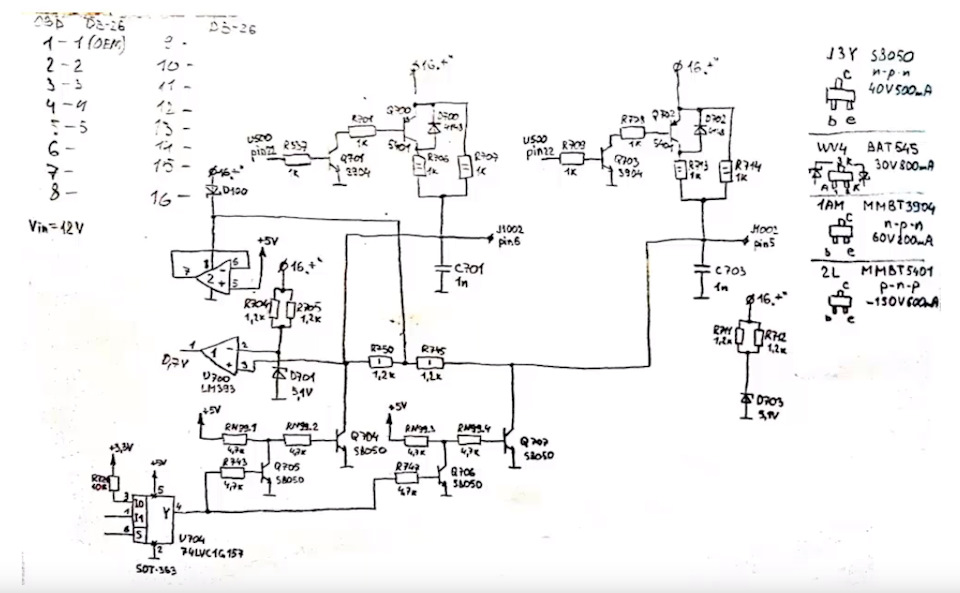 D3-26
D3-26
1 - 1 (OEM)
2 - 2
3 - 3
4 - 4
5 - 5
6 -
7 -
8 -
9 -
10 -
11 -
12 -
13 -
14 -
15 -
16 -
Vin = 12V
16.+"
Q700
D700
4148
R701
1K
5401
U500
pin21
R537
1K
Q701
3904
R706
1K
R707
1K
J1002
pin6
C701
1n
16.+"
Q702
D702
4148
R708
1K
5401
U500
pin22
R709
1K
Q703
3904
R713
1K
R714
1K
J1002
pin5
C703
1n
16.+"
D100
+5V
7
8
2
-
+
6
5
16.+"
R704
1,2K
R705
1,2K
1
0,7V
1
-
+
2
3
U700
LM393
D701
5,1V
R750
1,2K
R745
1,2K
16.+"
R711
1,2K
R712
1,2K
D703
5,1V
+5V
RN99.1
4,7K
RN99.2
4,7K
Q704
S8050
R743
4,7K
Q705
S8050
+5V
RN99.3
4,7K
RN99.4
4,7K
Q707
S8050
R747
4,7K
Q706
S8050
+3,3V
10K
+5V
5
3
I0
1
I1
6
S
Y
4
2
U704
74LVC1G157
SOT-363
J3Y S8050
n-p-n
40V 500mA
c
b e
WV4 BAT54S
30V 800mA
A K
1AM MMBT3904
n-p-n
60V 200mA
c
b e
2L MMBT5401
p-n-p
-150V 600mA
c
b e